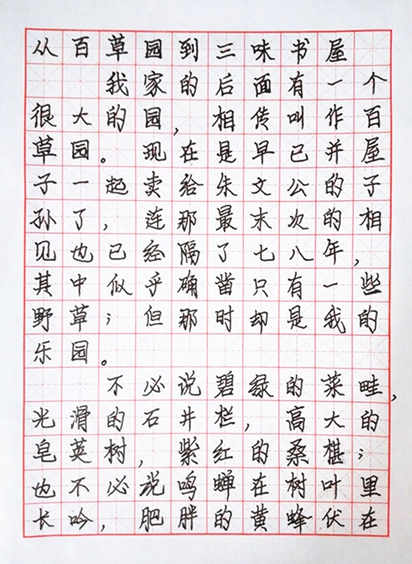 从百草园到三味书屋
我家的后面有一个
很大的园，相传叫作百
草园。现在是早已并屋
子一起卖给朱文公的子
孙了，连那最末次的相
见也已经隔了七八年，
其中似乎确凿只有一些
野草；但那时却是我的
乐园。
不必说碧绿的菜畦，
光滑的石井栏，高大的
皂荚树，紫红的桑椹；
也不必说鸣蝉在树叶里
长吟，肥胖的黄蜂伏在